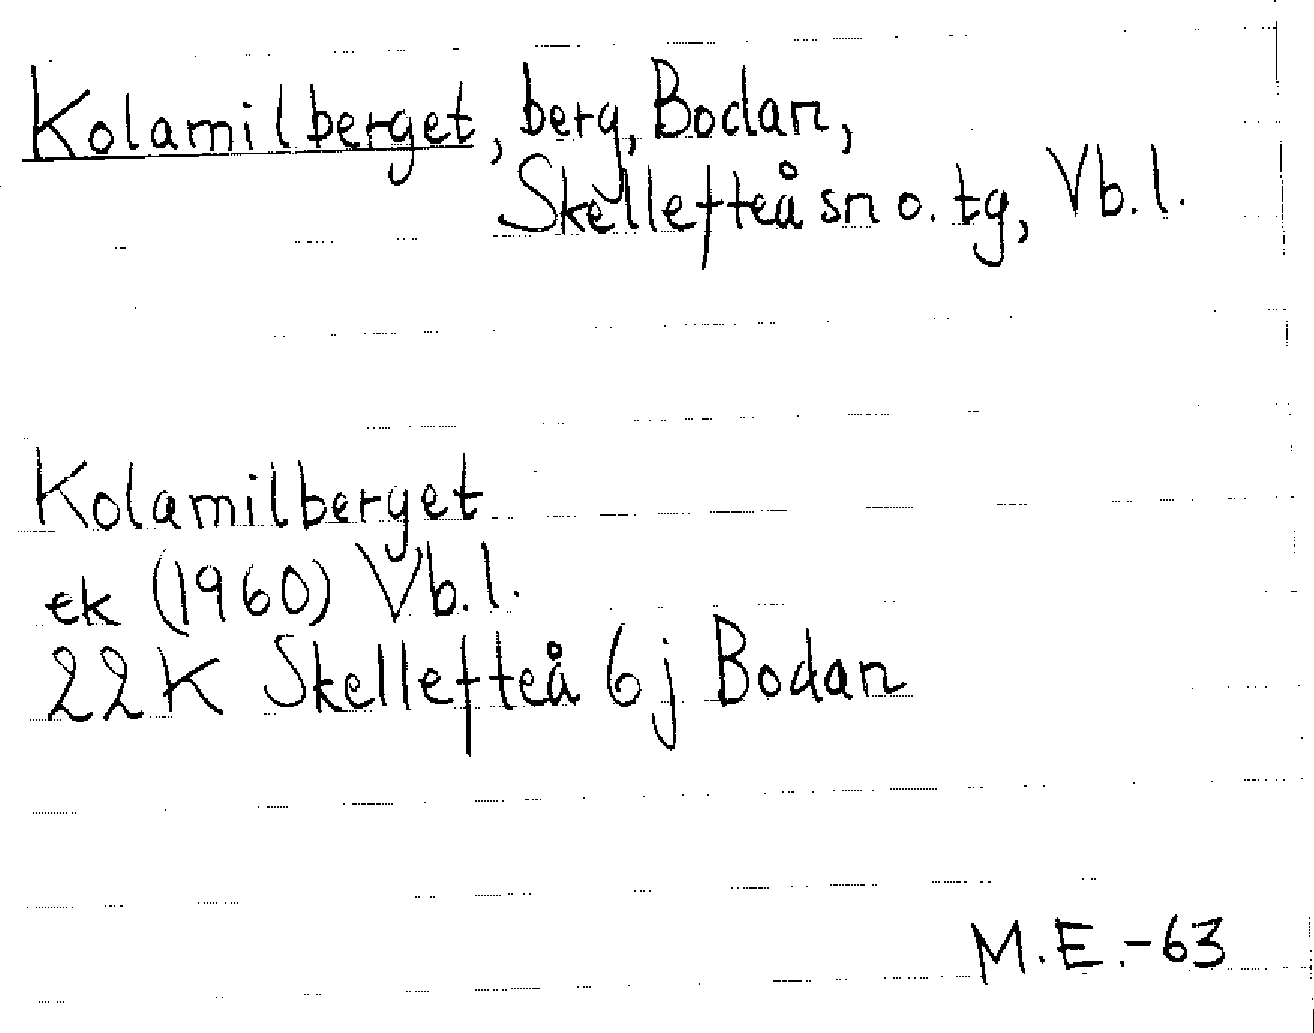 Kolamilberget, berg, Bodan,
Skellefteå sn o. tg, Vb. l.
Kolamilberget
ek (1960) Vb. l.
22K Skellefteå 6j Bodan
M.E.-63